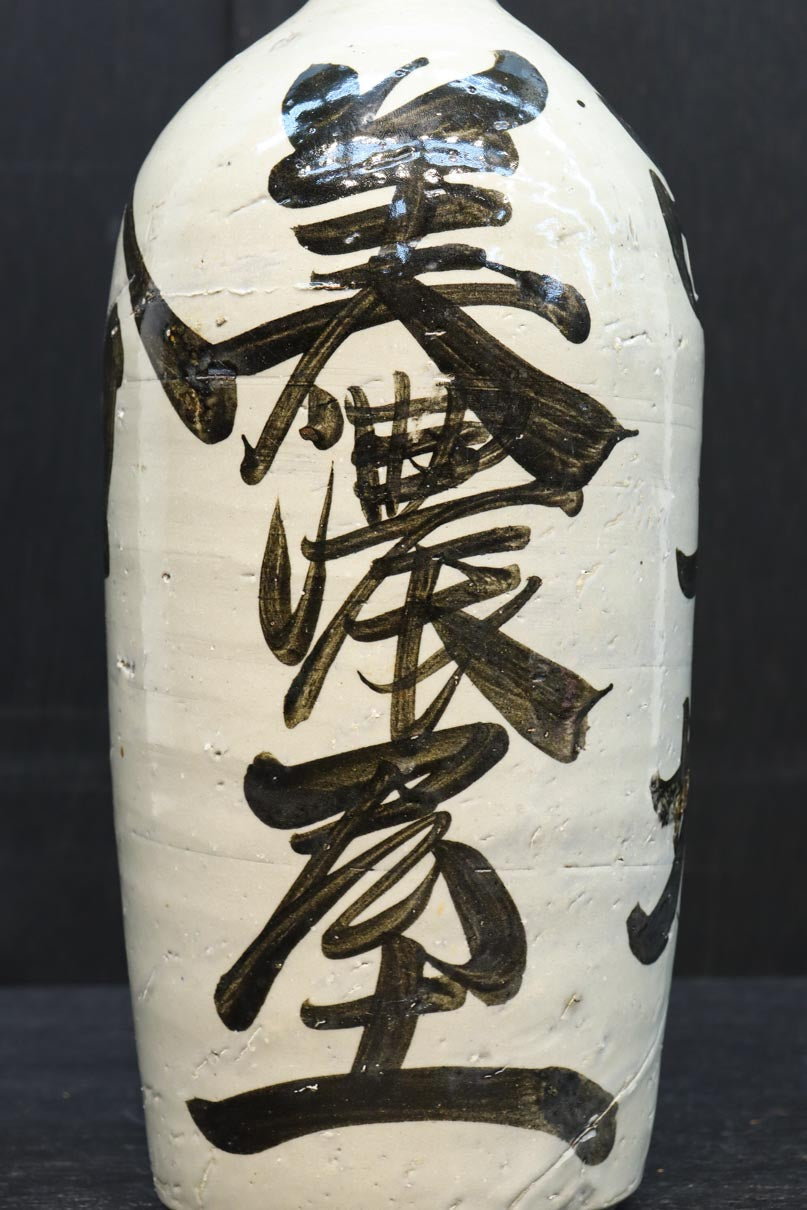 美濃屋